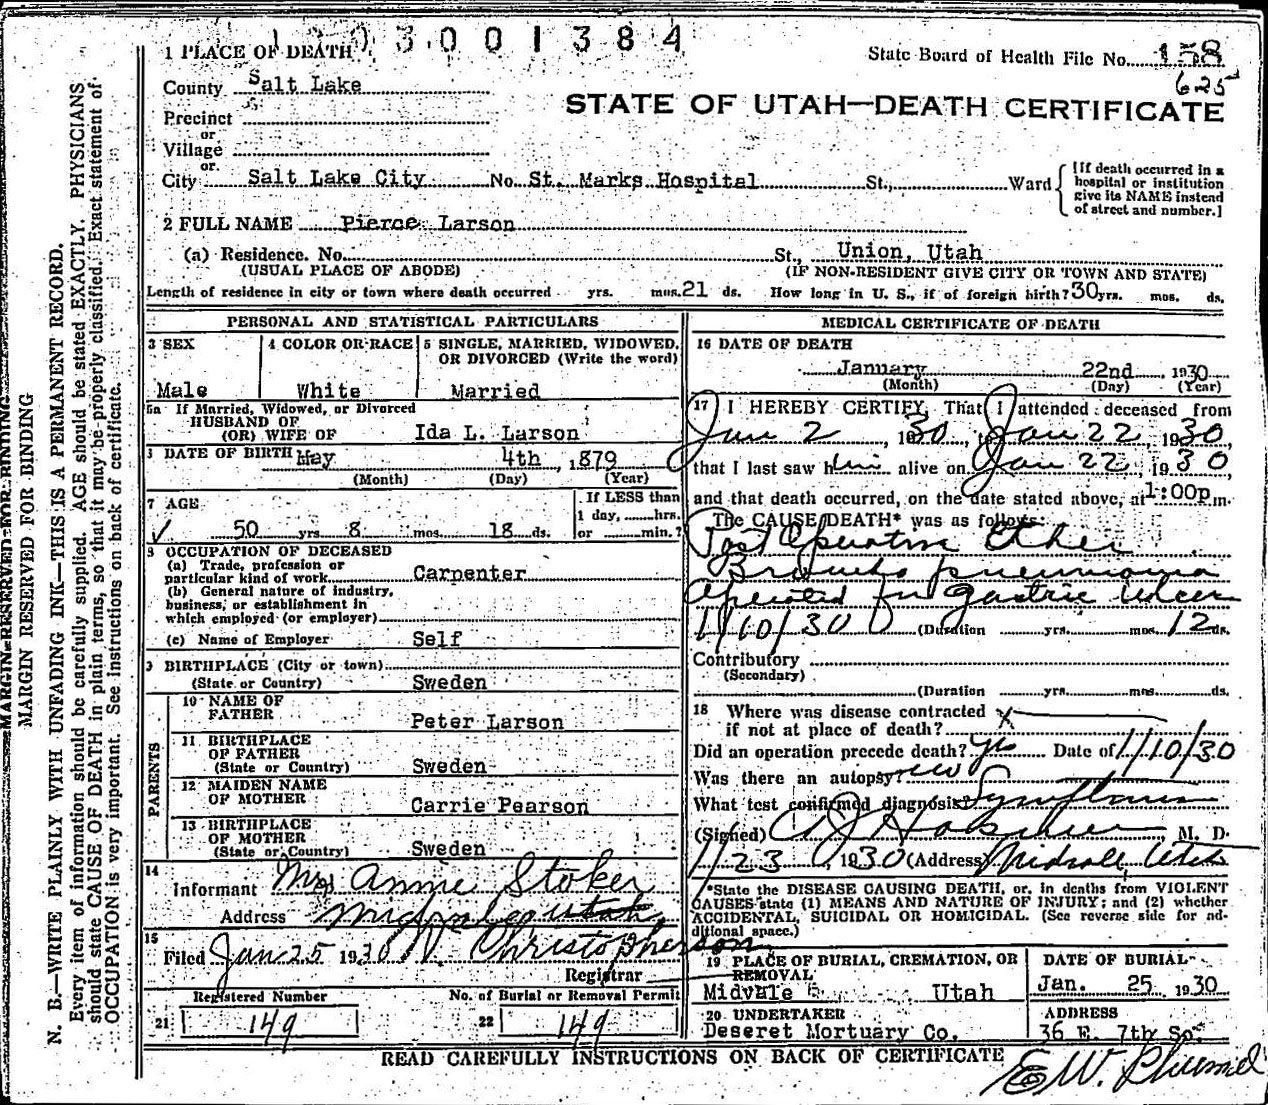 1203001384
1 PLACE OF DEATH
State Board of Health File No. 158
625
County Salt Lake
STATE OF UTAH—DEATH CERTIFICATE
Precinct
or
Village
or
City Salt Lake City No. St. Marks Hospital St., Ward
[If death occurred in a hospital or institution give its NAME instead of street and number.]
2 FULL NAME Pierce Larson
(a) Residence. No. St., Union, Utah
(USUAL PLACE OF ABODE) (IF NON-RESIDENT GIVE CITY OR TOWN AND STATE)
Length of residence in city or town where death occurred yrs. mos. 21 ds. How long in U. S., if of foreign birth? 30 yrs. mos. ds.
PERSONAL AND STATISTICAL PARTICULARS
3 SEX
Male
4 COLOR OR RACE
White
5 SINGLE, MARRIED, WIDOWED,
OR DIVORCED (Write the word)
Married
5a If Married, Widowed, or Divorced
HUSBAND OF
(OR) WIFE OF Ida L. Larson
DATE OF BIRTH May 4th, 1879
(Month) (Day) (Year)
7 AGE
50 yrs 8 mos. 18 ds.
If LESS than
1 day, hrs.
or min.?
8 OCCUPATION OF DECEASED
(a) Trade, profession or
particular kind of work Carpenter
(b) General nature of industry,
business, or establishment in
which employed (or employer)
(c) Name of Employer Self
9 BIRTHPLACE (City or town)
(State or Country) Sweden
PARENTS
10 NAME OF
FATHER Peter Larson
11 BIRTHPLACE
OF FATHER
(State or Country) Sweden
12 MAIDEN NAME
OF MOTHER Carrie Pearson
13 BIRTHPLACE
OF MOTHER
(State or Country) Sweden
14
Informant Mrs Annie Stoker
Address Midvale Utah
15
Filed Jan 25 1930 N. Christopherson
Registrar
Registered Number
21 149
No. of Burial or Removal Permit
22 149
MEDICAL CERTIFICATE OF DEATH
16 DATE OF DEATH
January 22nd 1930
(Month) (Day) (Year)
17 I HEREBY CERTIFY, That I attended deceased from
Jan 2, 1930, to Jan 22, 1930,
that I last saw him alive on Jan 22, 1930
and that death occurred, on the date stated above, at 1:00p m.
The CAUSE DEATH* was as follows:
Post Operative Ether
Broncho pneumonia
Operated for gastric Ulcer
1/10/30 (Duration yrs. mos. 12 ds.
Contributory
(Secondary)
(Duration yrs. mos. ds.
18 Where was disease contracted
if not at place of death?
Did an operation precede death? yes Date of 1/10/30
Was there an autopsy no
What test confirmed diagnosis? Symptoms
(Signed) M. D.
1/23, 1930 (Address) Midvale, Utah
*State the DISEASE CAUSING DEATH, or, in deaths from VIOLENT
CAUSES state (1) MEANS AND NATURE OF INJURY; and (2) whether
ACCIDENTAL, SUICIDAL OR HOMICIDAL. (See reverse side for ad-
ditional space.)
19 PLACE OF BURIAL, CREMATION, OR
REMOVAL
Midvale Utah
DATE OF BURIAL
Jan. 25 1930
20 UNDERTAKER
Deseret Mortuary Co.
ADDRESS
36 E. 7th So.
READ CAREFULLY INSTRUCTIONS ON BACK OF CERTIFICATE
E W.
MARGIN RESERVED FOR BINDING
MARGIN RESERVED FOR BINDING
N. B.—WRITE PLAINLY WITH UNFADING INK—THIS IS A PERMANENT RECORD.
Every item of information should be carefully supplied. AGE should be stated EXACTLY. PHYSICIANS
should state CAUSE OF DEATH in plain terms, so that it may be properly classified. Exact statement of
OCCUPATION is very important. See instructions on back of certificate.